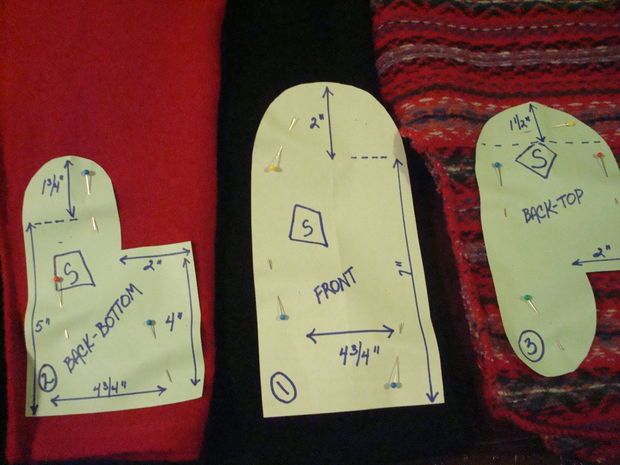 1 3/4"
S
2"
5"
BACK-BOTTOM
4"
2
4 3/4"
2"
S
7"
FRONT
4 3/4"
1
1 1/2"
S
BACK-TOP
2"
3